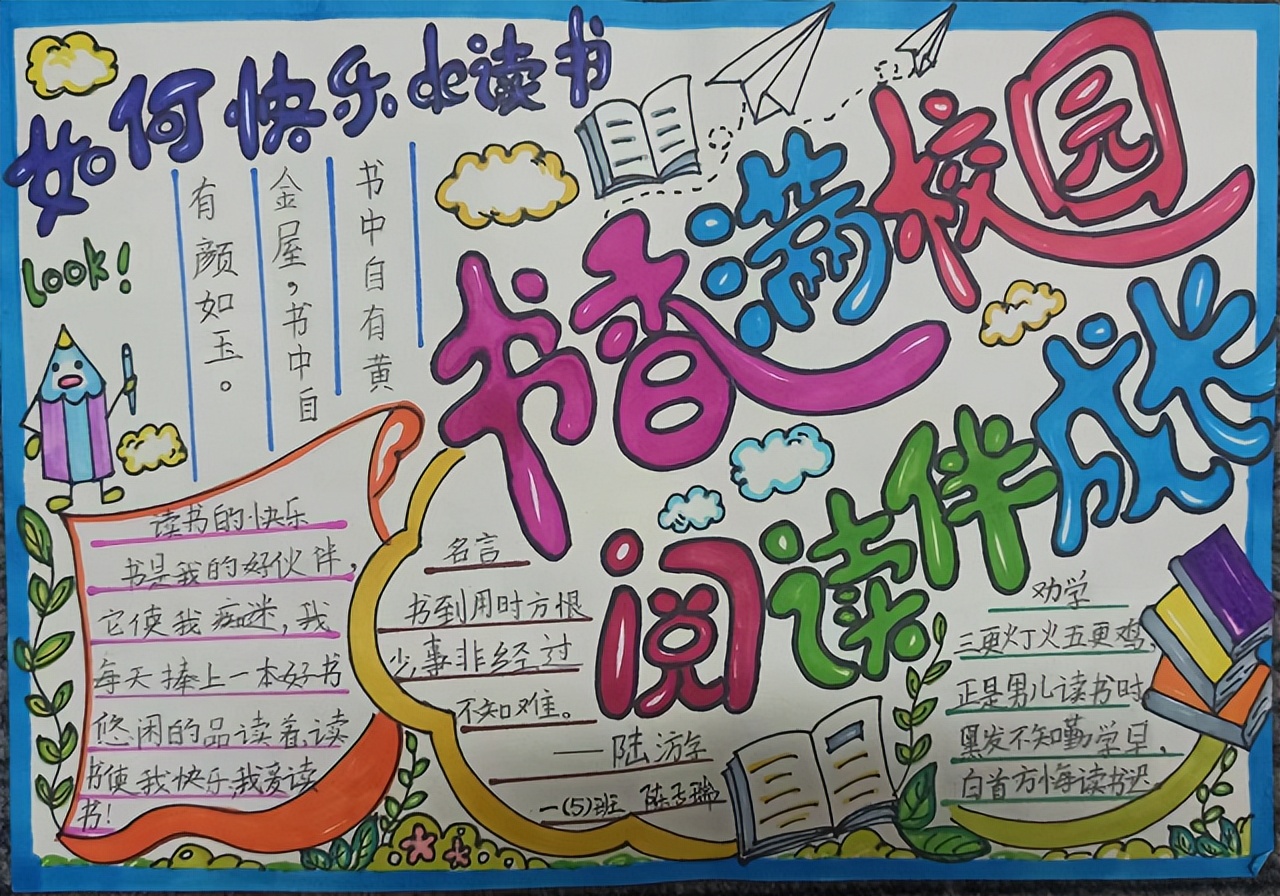 如何快乐de读书
look!
书中自有黄
金屋，书中自
有颜如玉。
书香满校园
阅读伴成长
读书的快乐
书是我的好伙伴，
它使我痴迷，我
每天捧上一本好书
悠闲的品读着，读
书使我快乐，我爱读
书！
名言
书到用时方恨
少，事非经过
不知难。
——陆游
一(5)班
劝学
三更灯火五更鸡，
正是男儿读书时，
黑发不知勤学早，
白首方悔读书迟。